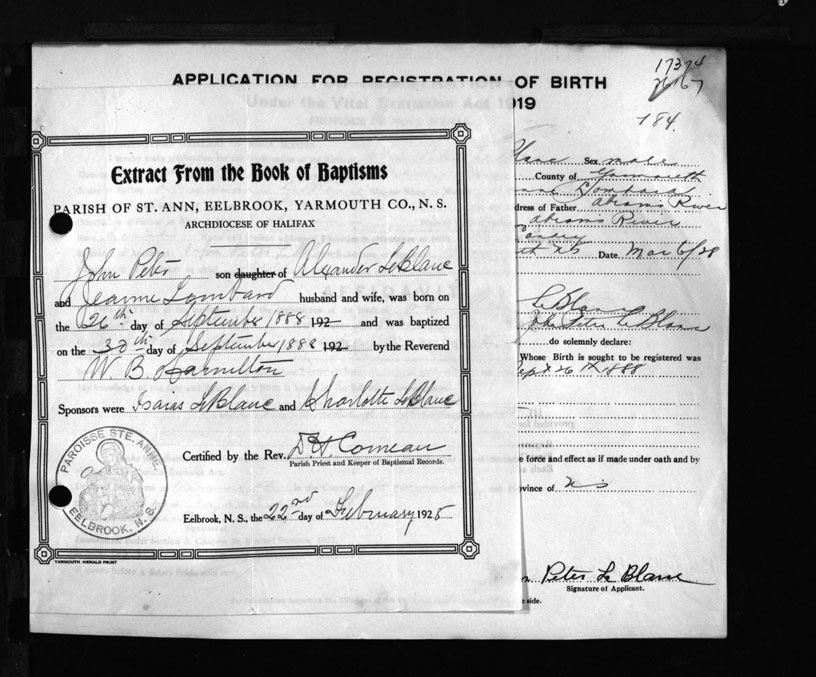 17374
7667
184.
APPLICATION FOR REGISTRATION OF BIRTH
Under the Vital Statistics Act 1919
Extract From the Book of Baptisms
PARISH OF ST. ANN, EELBROOK, YARMOUTH CO., N. S.
ARCHDIOCESE OF HALIFAX
John Peter son daughter of Alexander LeBlanc
and Jeanne Lombard husband and wife, was born on
the 26th day of September 1888 192 and was baptized
on the 30th day of September 1888 192 by the Reverend
W. B. Hamilton
Sponsors were Isaias LeBlanc and Sharlotte LeBlanc
Certified by the Rev. D. H. Comeau
Parish Priest and Keeper of Baptismal Records.
Eelbrook, N. S., the 22nd day of February 1928
PAROISSE STE. ANNE.
EELBROOK, N. S.
YARMOUTH HERALD PRINT
Blanc Sex male
County of Yarmouth
Lombard
dress of Father Abrams River
Abrams River
N S Date Mar 6/28
LeBlanc
John Peter LeBlanc
do solemnly declare:
Whose Birth is sought to be registered was
Sept 26th 1888
e force and effect as if made under oath and by
vince of N S
Peter LeBlanc
Signature of Applicant.
e side.